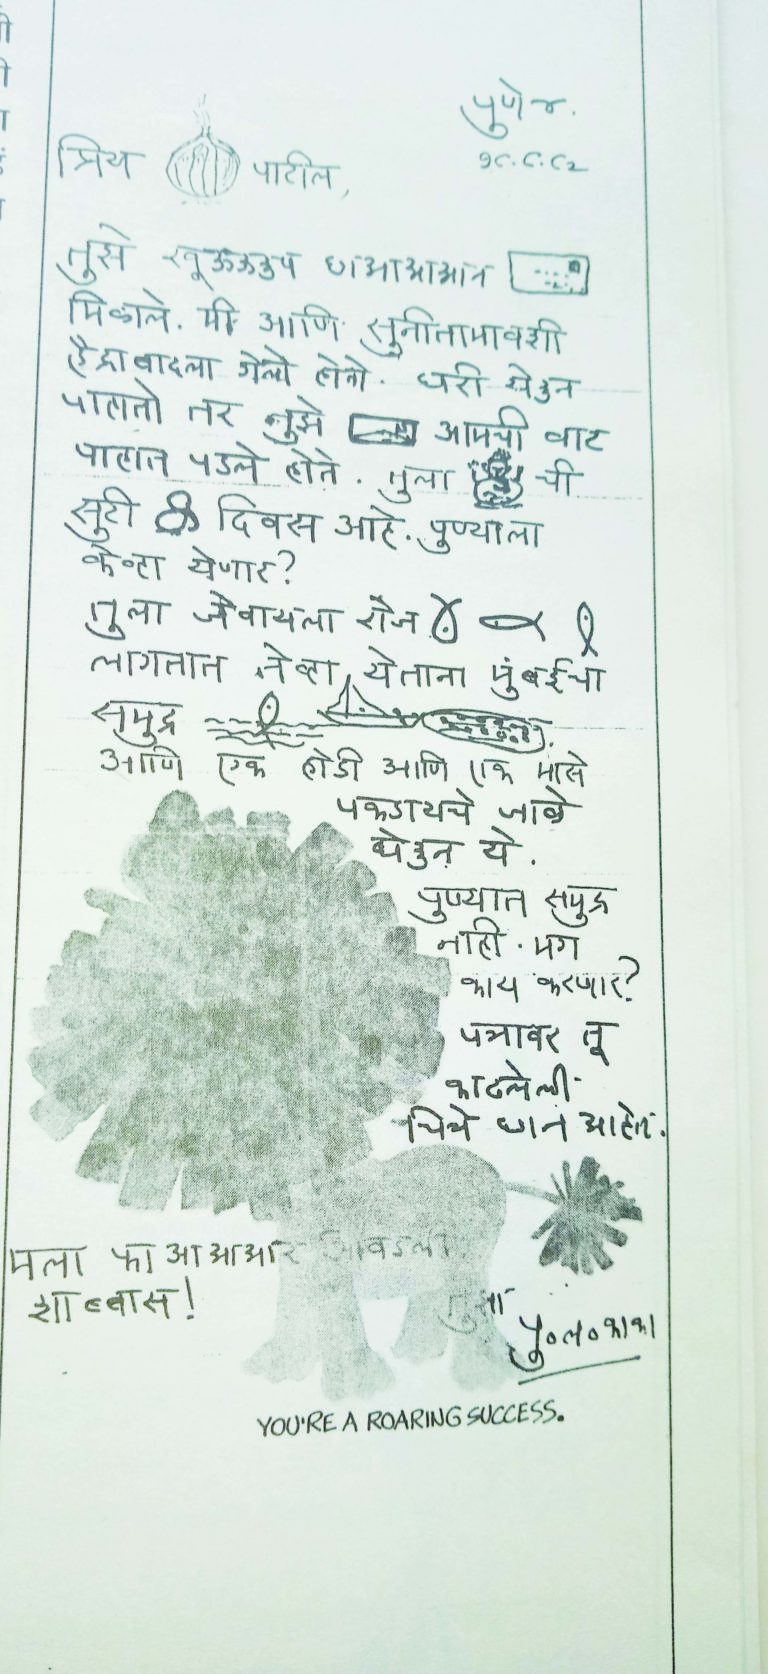 पुणे ४.
१८.८.८२
प्रिय पाटील,
तुझे खूऊऊऊप छाआआआआन
मिळाले. मी आणि सुनीतामावशी
हैद्राबादला गेलो होतो. घरी येऊन
पाहातो तर तुझे आमची वाट
पाहात पडले होते. तुला ची
सुटी दिवस आहे. पुण्याला
केव्हा येणार?
तुला जेवायला रोज
लागतात तेव्हा येताना मुंबईचा
समुद्र
आणि एक होडी आणि एक मासे
पकडायचे जाळे
घेऊन ये.
पुण्यात समुद्र
नाही. मग
काय करणार?
पत्रावर तू
काढलेली
चित्रे छान आहेत.
मला फाआआआआर आवडली.
शाब्बास!
तुझा
पु०ल०काका
YOU'RE A ROARING SUCCESS.